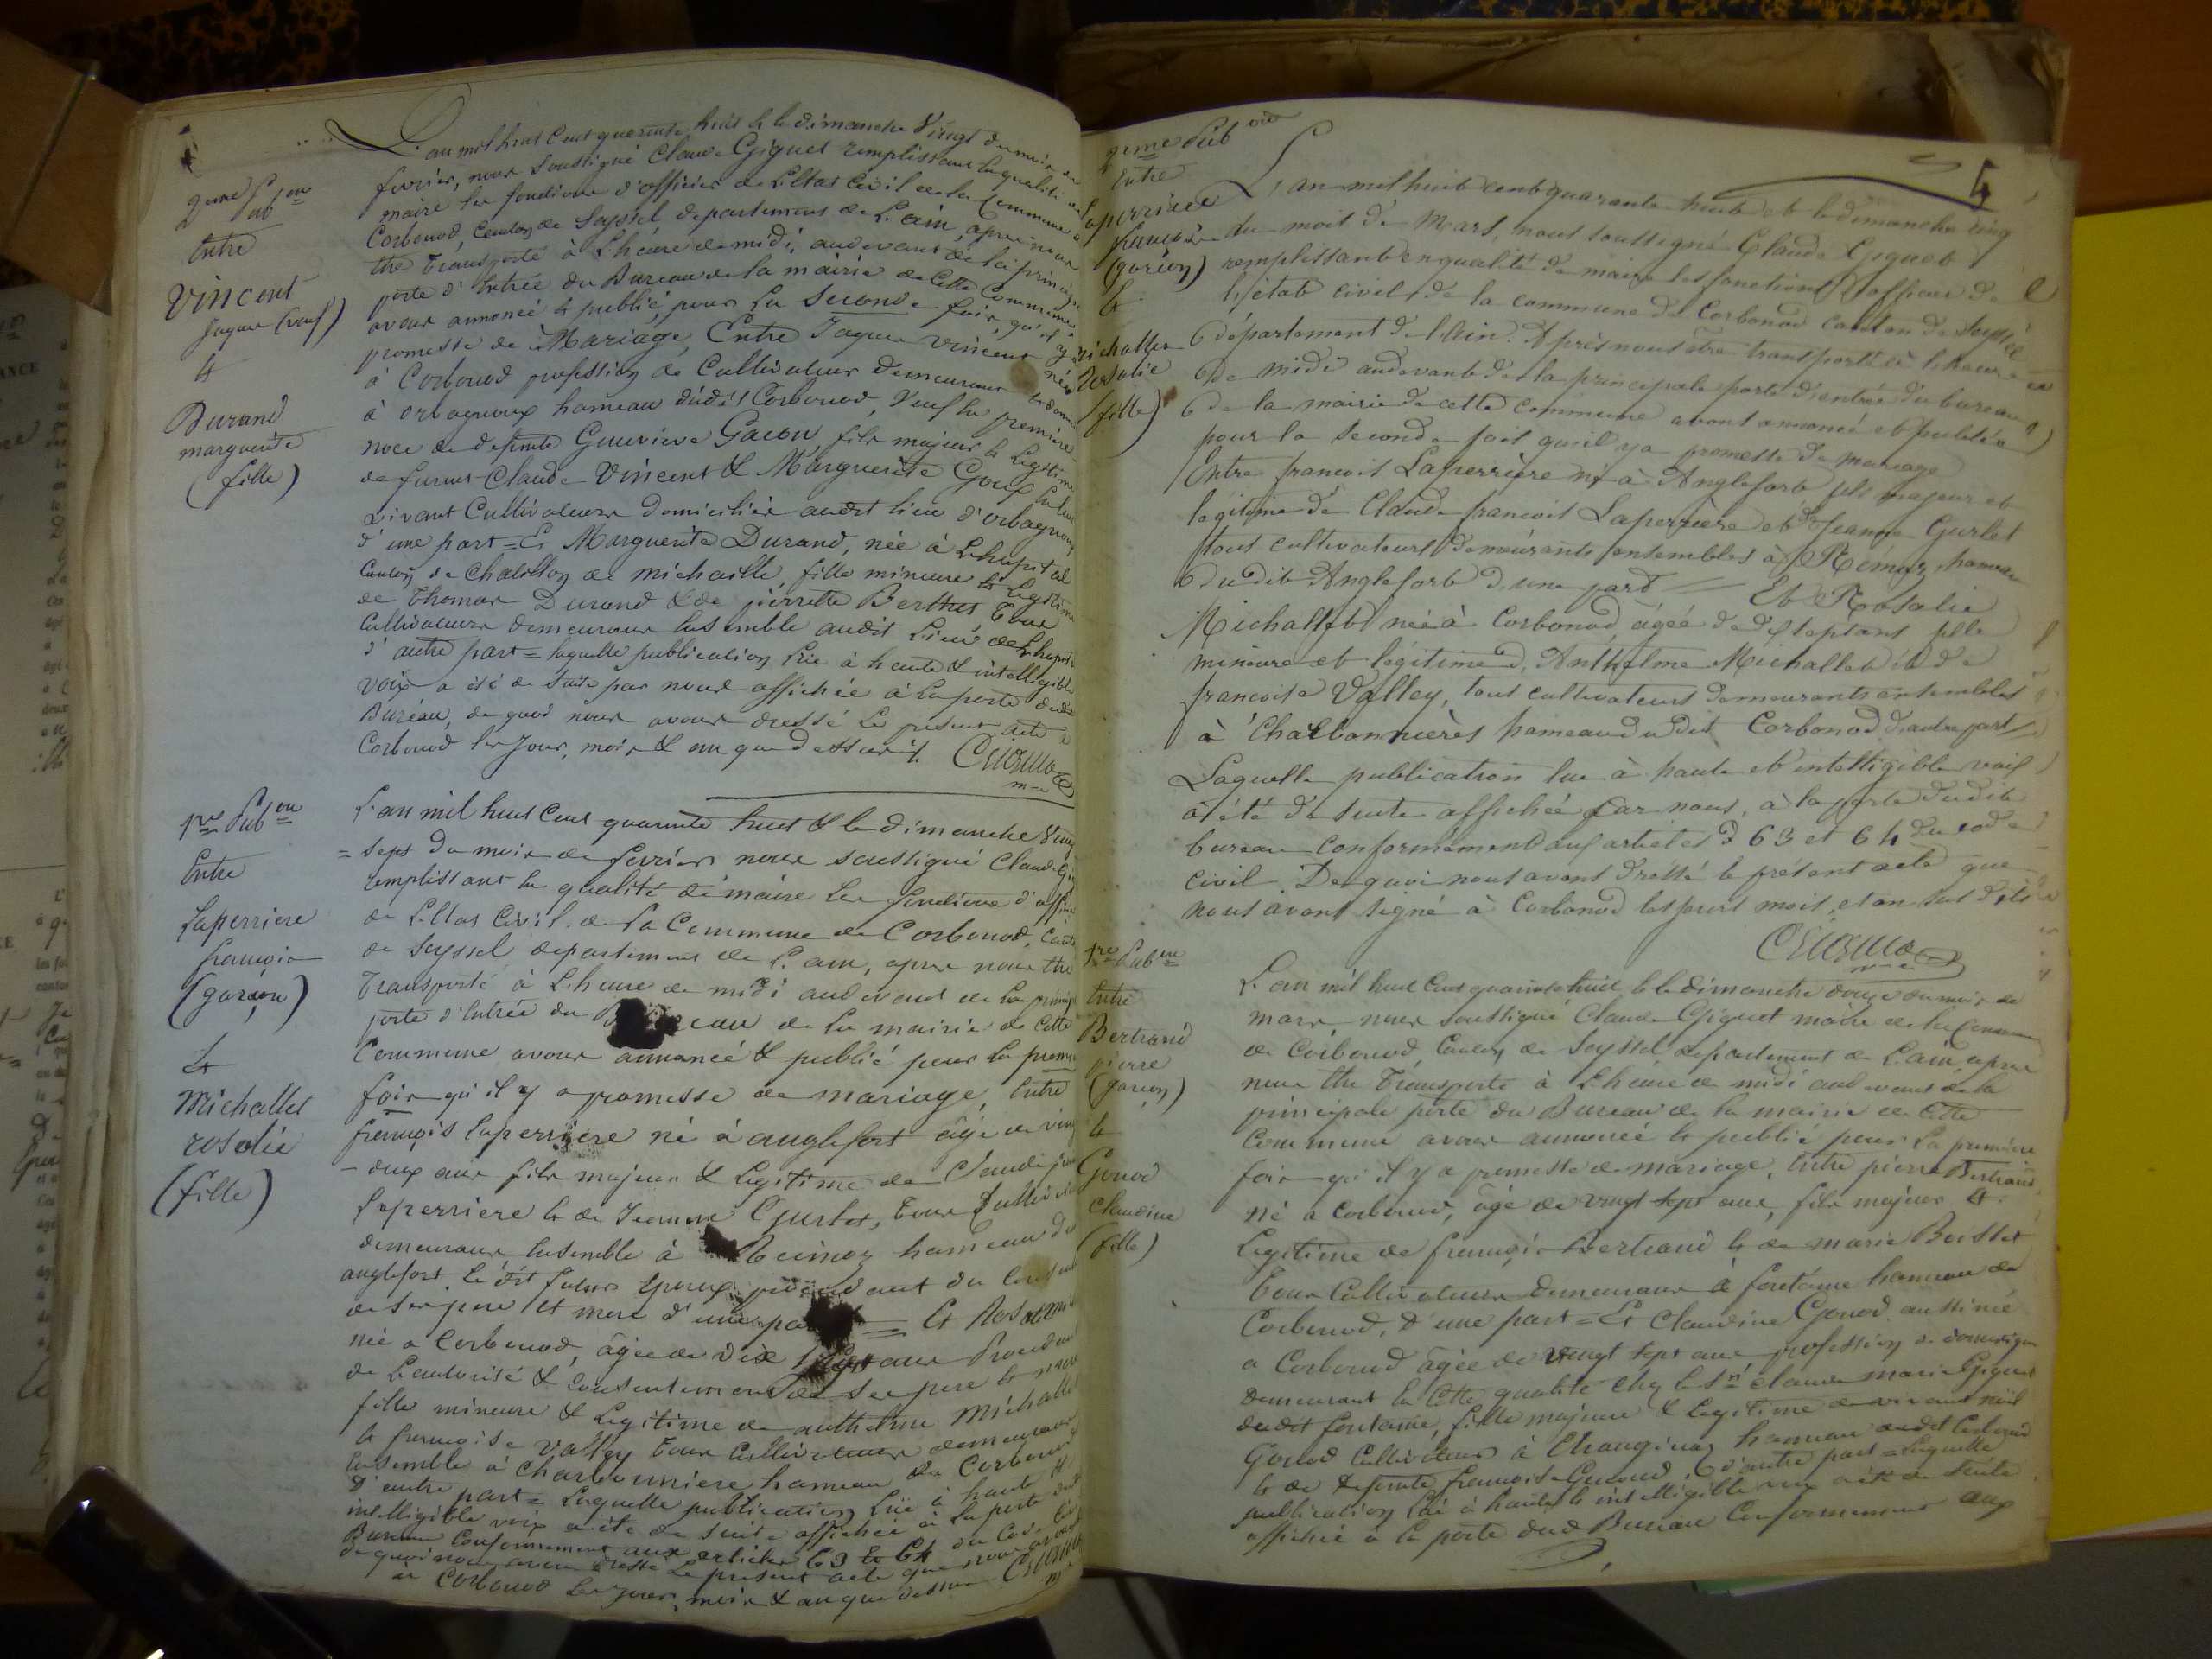 2eme Pub on
Entre
Vincent
Jaque (veuf)
&
Durand
marguerite
(fille)
L'an mil huit Cent quarante huit & le dimanche Vingt du mois de
fevrier, nous soussigné Claude Giguet remplissant la qualité de
maire les fonctions d'officier de L'Etat Civil de la Commune de
Corbonod, Canton de Seyssel, departement de L'ain, apres nous
etre Transporté à L'heure de midi, audevant de la principale
porte d'Entrée du Bureau de la mairie de Cette Commune,
avons annoncé & publié, pour la Seconde fois, qu'il y
promesse de Mariage, Entre Jaque Vincent né
à Corbonod profession de Cultivateur demeurant
à orbagnoux hameau dudit Corbonod, Veuf En première
noce de defunte Gunieve Gacon, fils majeur & Legitime
de furent Claude Vincent & Marguerite Goux
vivant Cultivateurs domiciliés audit lieu d'orbagnoux
d'une part = Et Marguerite Durand, née à Lhopital
Canton de Chatillon de michaille, fille mineure & Legitime
de Thomas Durand & de pierrette Berthet Tous
Cultivateurs demeurant Ensemble audit Lieu de Lhopital
d'autre part = Laquelle publication Lüe à haute & intelligible
voix a été de Suite par nous affichée à la porte dudit
Bureau, de quoi nous avons dressé Le present acte à
Corbonod les Jour, mois & an que dessus
1re Pub on
Entre
Laperriere
françois
(garçon)
&
Michallet
rosalie
(fille)
L'an mil huit Cent quarante huit & le dimanche Vingt
= sept du mois de fevrier nous soussigné Claude
remplissant la qualité de maire les fonctions d'
de L'Etat Civil de La Commune de Corbonod,
de Seyssel departement de L'ain, apres nous etre
Transporté à L'heure de midi audevant de la
porte d'Entrée du Bureau de la mairie de Cette
Commune avons annoncé & publié pour la
fois qu'il y a promesse de mariage, Entre
françois laperriere né à anglefort âgé de
= deux ans fils majeur & Legitime de Claude
Laperriere & de Jeanne Gurlet, Tous
demeurant Ensemble à Reimoz hameau
anglefort, le dit futur Epoux
de ses pere et mere d'une part = Et
née a Corbonod, âgée de dix Sept ans
de L'autorité & Consentement de ses pere &
fille mineure & Legitime de anthelme Michallet
& françoise Valley Tous Cultivateurs demeurant
Ensemble à Charbonniere hameau de Corbonod
d'autre part = Laquelle publication Lüe à haute &
intelligible voix a été de suite affichée à la porte
Bureau Conformement aux articles 63 & 64 du Code
de quoi nous avons dressé Le present acte que nous avons
à Corbonod les jour, mois & an que dessus
2eme Pub on
Entre
Laperriere
françois
(garçon)
&
Michallet
Rosalie
(fille)
L'an mil huit cent quarante huit et le dimanche cinq
du mois de Mars, nous soussigné Claude Giguet
remplissant en qualité de maire les fonctions d'officier de
l'état civil de la commune de Corbonod canton de Seyssel
département de l'Ain. Après nous être transporté à l'heure
de midi audevant de la principale porte d'entrée du bureau
de la mairie de cette commune avons annoncé et publié
pour la seconde fois qu'il y a promesse de mariage
Entre francois Laperrière né à Anglefort fils majeur et
légitime de Claude francois Laperrière et de Jeanne Gurlet
tous cultivateurs demeurants ensembles à Rémoz hameau
dudit Anglefort d'une part = Et Rosalie
Michallet née à Corbonod âgée de dix sept ans fille
mineure et légitime d'Anthelme Michallet et de
francoise Valley, tous cultivateurs demeurants ensembles
à Charbonnières hameau dudit Corbonod d'autre part
Laquelle publication lue à haute et intelligible voix
a été de suite affichée par nous, à la porte dudit
bureau conformément aux articles 63 et 64 du code
civil. De quoi nous avons dressé le présent acte que
nous avons signé à Corbonod les jours mois et an sus dits
1re Pub on
Entre
Bertrand
pierre
(garçon)
&
Gonod
Claudine
(fille)
L'an mil huit Cent quarante huit & le dimanche douze du mois de
mars, nous soussigné Claude Giguet maire de la Commune
de Corbonod, Canton de Seyssel, departement de L'ain, apres
nous etre Transporté à L'heure de midi audevant de la
principale porte du Bureau de la mairie de Cette
Commune avons annoncé & publié pour La première
fois qu'il y a promesse de mariage, Entre pierre Bertrand,
né a Corbonod, âgé de vingt sept ans, fils majeur &
Legitime de françois Bertrand & de marie
Tous Cultivateurs demeurant à fontaine hameau de
Corbonod, d'une part = Et Claudine Gonod aussi née
a Corbonod âgée de vingt sept ans profession de domestique
demeurant En Cette qualité Chez le Sr Claude marie Giguet
dudit fontaine, fille majeure & Legitime
Gonod Cultivateur à Changinas hameau dudit Corbonod
& de defunte francoise d'autre part = Laquelle
publication Lüe à haute & intelligible voix a été de suite
affichée à la porte dudit Bureau Conformement aux